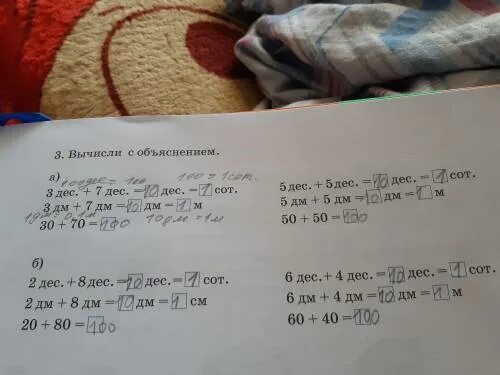 3. Вычисли с объяснением.
а) 10 дес = 1 сот 100 = 1 сот.
3 дес. + 7 дес. = 10 дес. = 1 сот.
3 дм + 7 дм = 10 дм = 1 м
1 дм = 0,1 м 10 дм = 1 м
30 + 70 = 100
5 дес. + 5 дес. = 10 дес. = 1 сот.
5 дм + 5 дм = 10 дм = 1 м
50 + 50 = 100
б)
2 дес. + 8 дес. = 10 дес. = 1 сот.
2 дм + 8 дм = 10 дм = 1 см
20 + 80 = 100
6 дес. + 4 дес. = 10 дес. = 1 сот.
6 дм + 4 дм = 10 дм = 1 м
60 + 40 = 100